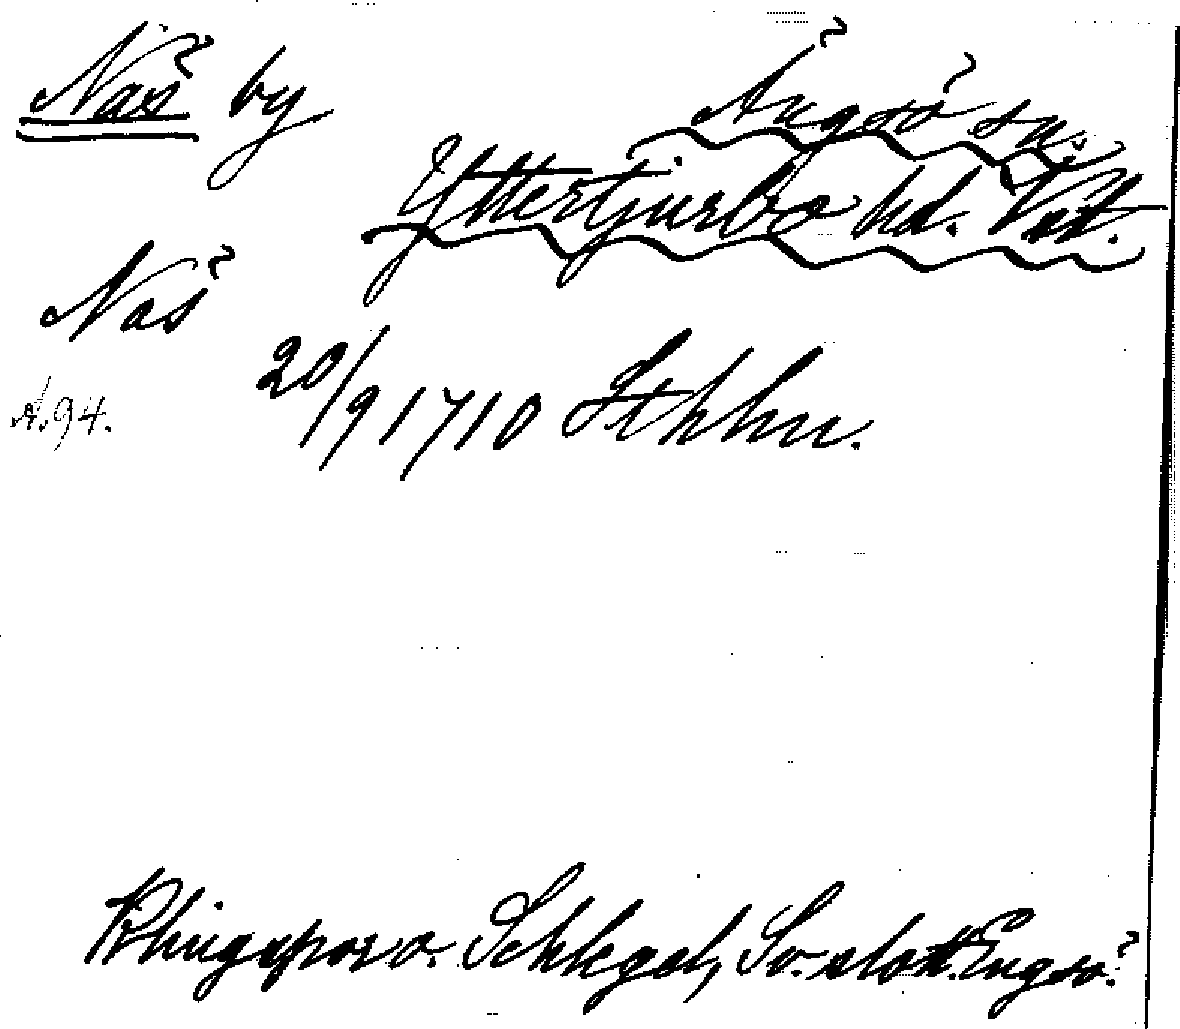 Näs by
Ängsö sn.
Yttertjurbo hd. Vstm.
Näs
20/9 1710 Sthlm.
A.94.
Klingspor o. Schlegel, Sv. slott. Engsö.